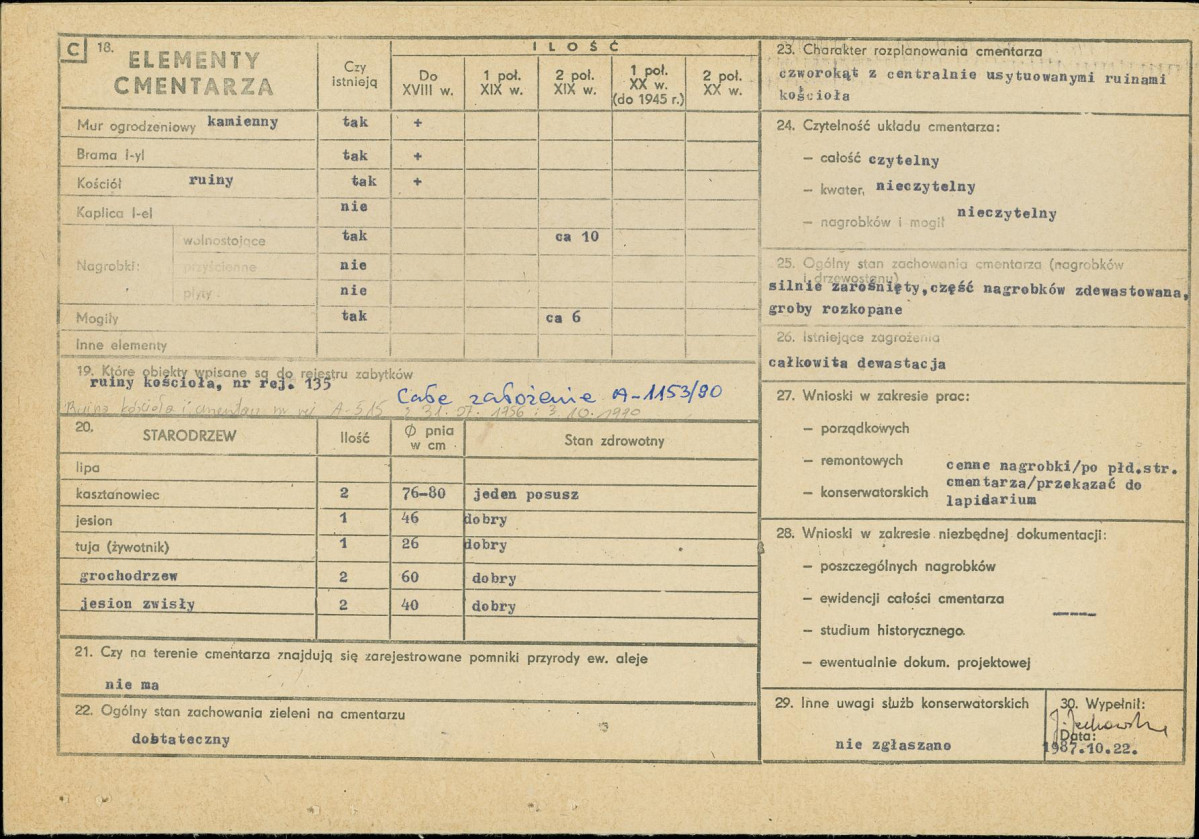 C 18. ELEMENTY CMENTARZA
Czy istnieją
ILOŚĆ
Do XVIII w.
1 poł. XIX w.
2 poł. XIX w.
1 poł. XX w. (do 1945 r.)
2 poł. XX w.
Mur ogrodzeniowy kamienny tak +
Brama i-yl tak +
Kościół ruiny tak +
Kaplica l-el nie
Nagrobki:
wolnostojące tak ca 10
przyścienne nie
płyty nie
Mogiły tak ca 6
Inne elementy
19. Które obiekty wpisane są do rejestru zabytków
ruiny kościoła, nr rej. 135
Całe założenie A-1153/90
Ruina kościoła i cmentarz nr rej A-515 z 31.07.1956 i 3.10.1990
20. STARODRZEW Ilość Ø pnia w cm Stan zdrowotny
lipa
kasztanowiec 2 76-80 jeden posusz
jesion 1 46 dobry
tuja (żywotnik) 1 26 dobry
grochodrzew 2 60 dobry
jesion zwisły 2 40 dobry
21. Czy na terenie cmentarza znajdują się zarejestrowane pomniki przyrody ew. aleje
nie ma
22. Ogólny stan zachowania zieleni na cmentarzu
dostateczny
23. Charakter rozplanowania cmentarza
czworokąt z centralnie usytuowanymi ruinami
kościoła
24. Czytelność układu cmentarza:
— całość czytelny
— kwater, nieczytelny
— nagrobków i mogił nieczytelny
25. Ogólny stan zachowania cmentarza (nagrobków
i drzewostanu)
silnie zarośnięty, część nagrobków zdewastowana,
groby rozkopane
26. Istniejące zagrożenia
całkowita dewastacja
27. Wnioski w zakresie prac:
— porządkowych
— remontowych
— konserwatorskich
cenne nagrobki/po płd.str.
cmentarza/przekazać do
lapidarium
28. Wnioski w zakresie niezbędnej dokumentacji:
— poszczególnych nagrobków
— ewidencji całości cmentarza
— studium historycznego
— ewentualnie dokum. projektowej
29. Inne uwagi służb konserwatorskich
nie zgłaszano
30. Wypełnił:
Data:
1987.10.22.